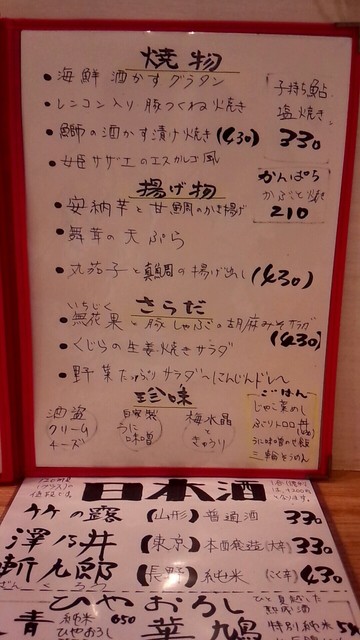 焼物
・海鮮酒かすグラタン
・レンコン入り豚つくね焼き
・鰤の酒かす漬け焼き (430)
・女臣サザエのエスカルゴ風
「子持ち鮎
塩焼き」
330
かんぱち
かぶと焼
210
揚げ物
・安納芋と甘鯛のかき揚げ
・舞茸の天ぷら
・丸茄子と真鯛の揚げ出し (430)
さらだ
いちじく
・無花果と豚しゃぶの胡麻みそサラダ (430)
・くじらの生姜焼きサラダ
・野菜たっぷりサラダ〜にんじんドレ〜
珍味
酒盗
クリーム
チーズ
自家製
うに
味噌
梅水晶
と
きゅうり
ごはん
じゃこ菜めし
三輪そうめん
日本酒
竹の露 (山形) 普通酒 330
澤乃井 (東京) 本西発造(大辛) 330
斬九郎 (長野) 純米 430
ひやおろし
青 純米 650
ひやおろし
華鳩 特別純米